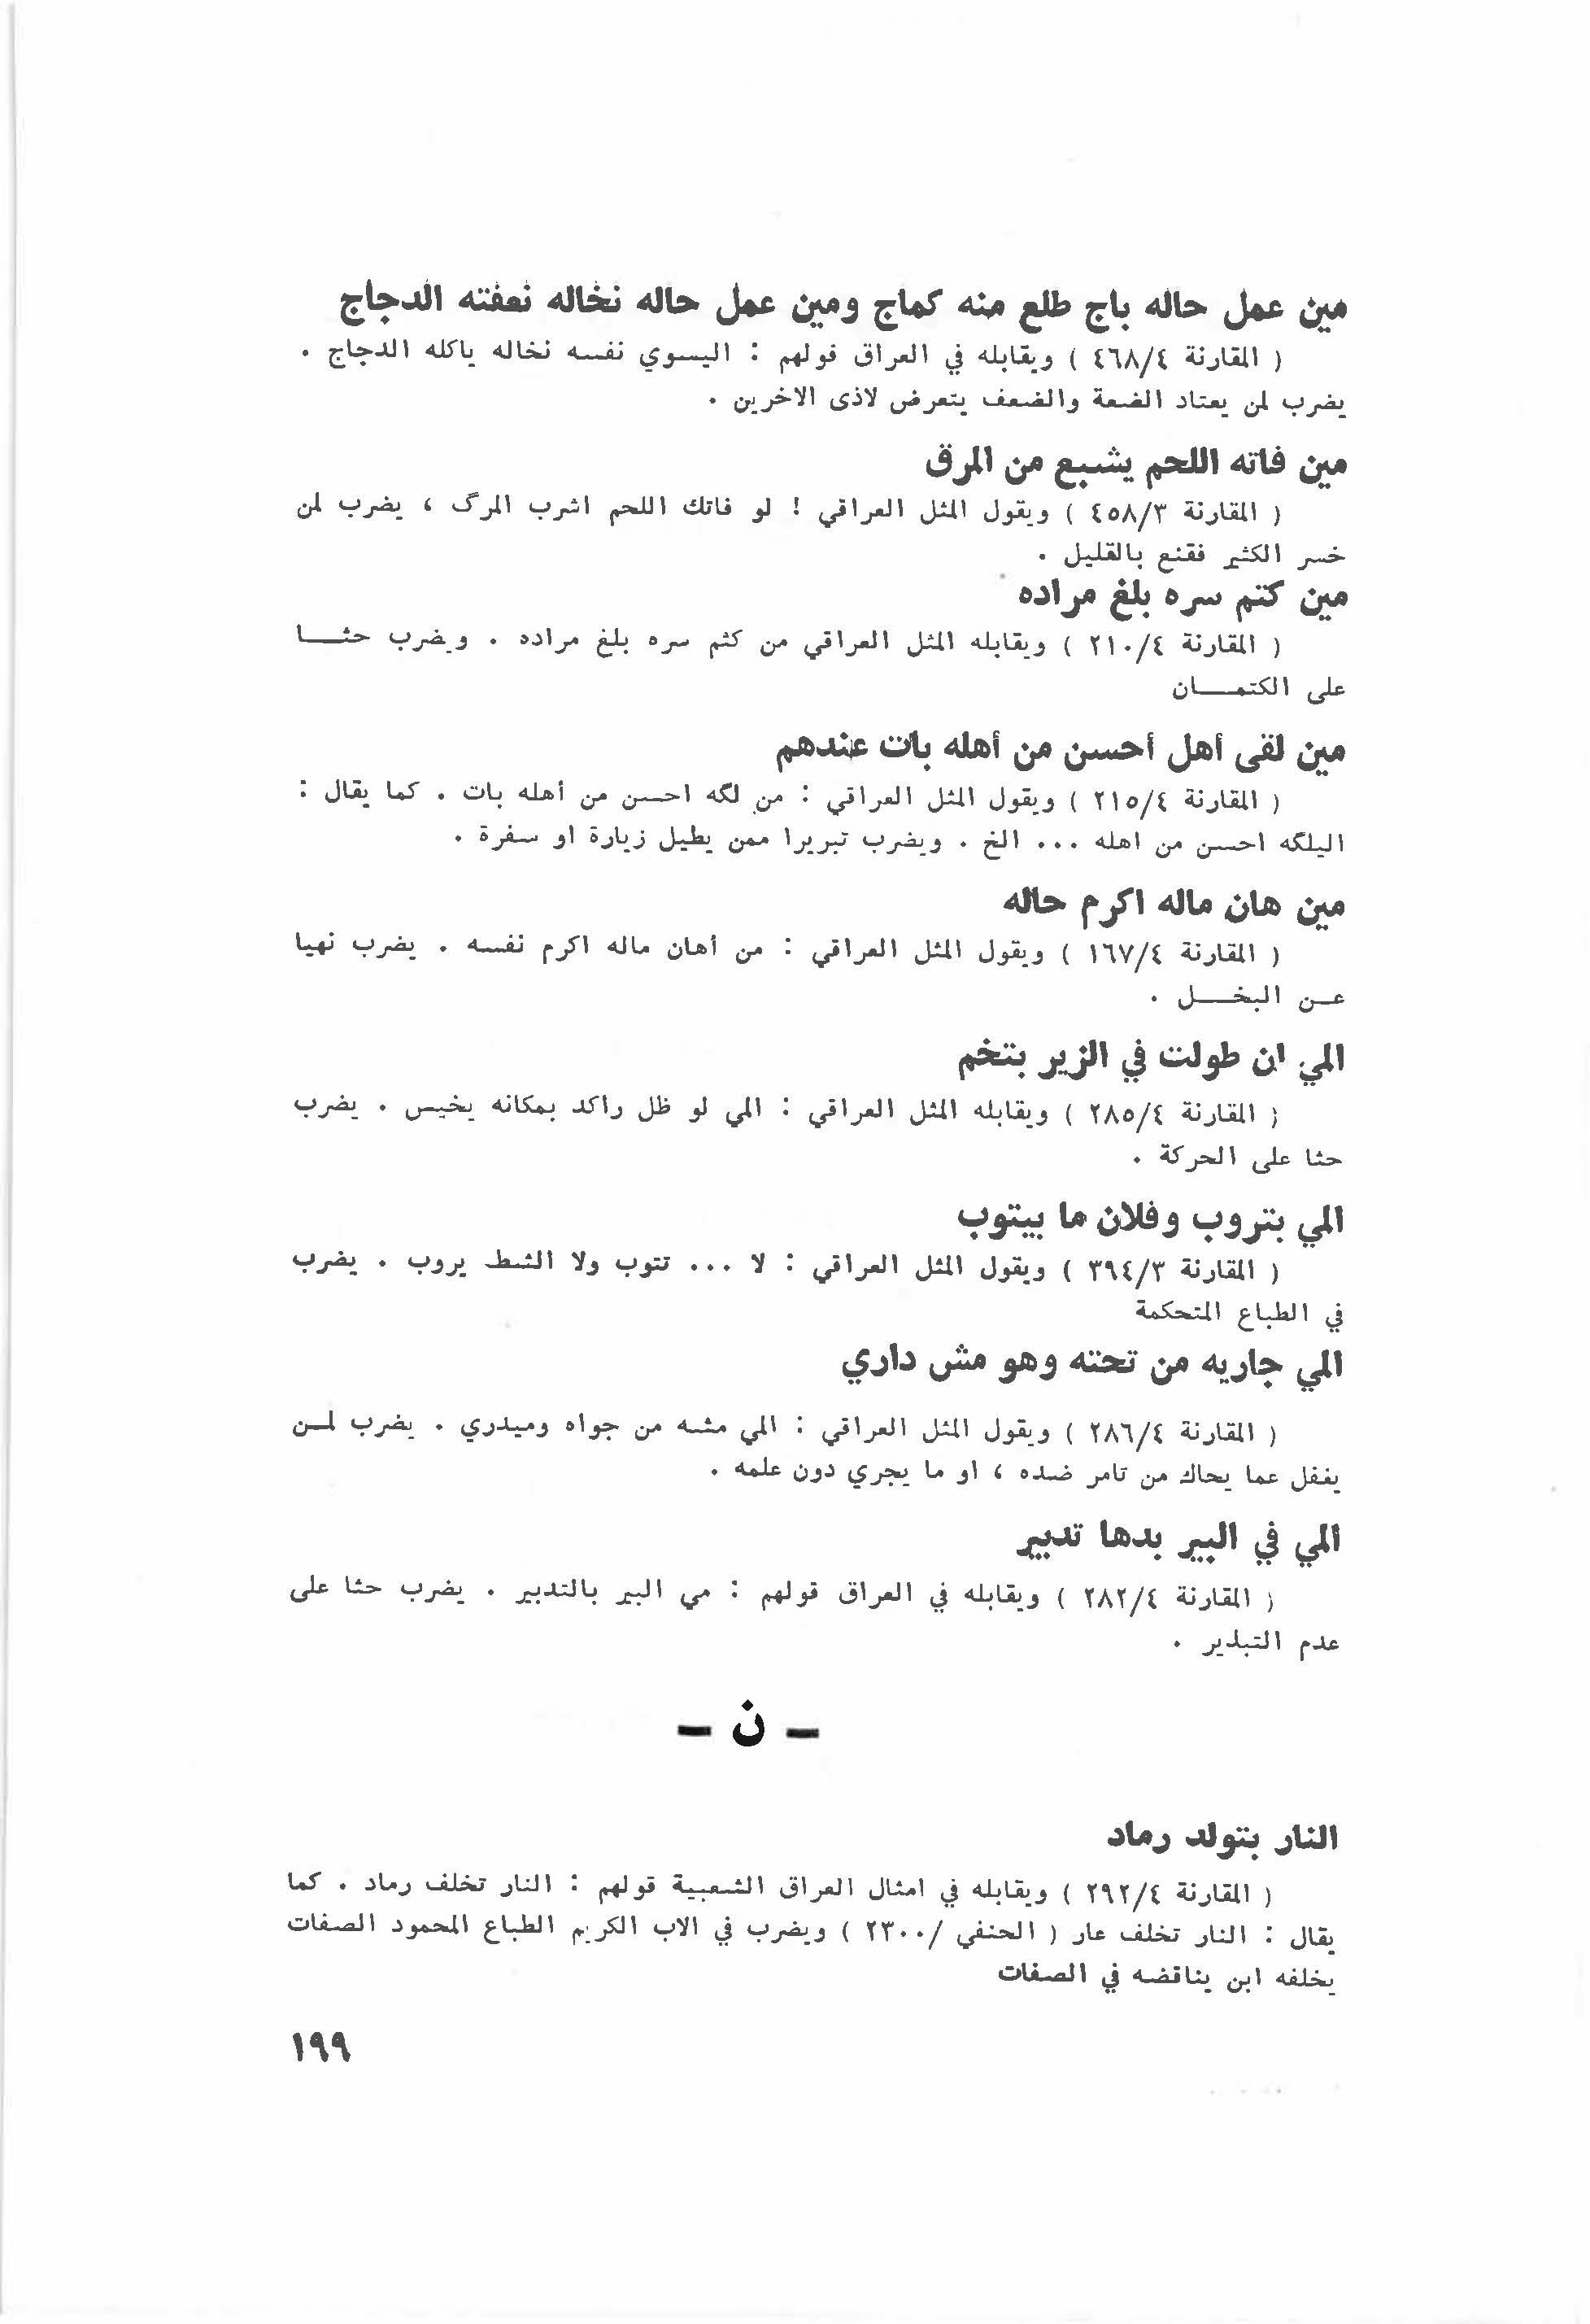 مين عمل حاله باج طلع منه كماج ومين عمل حاله نخاله نعفته الدجاج
( المقارنة ٤٦٨/٤ ) ويقابله في العراق قولهم : اليسوي نفسه نخاله ياكله الدجاج .
يضرب لمن يعتاد الضعة والضعف يتعرض لاذى الاخرين .
مين فاته اللحم يشبع من المرق
( المقارنة ٤٥٨/٣ ) ويقول المثل العراقي ! لو فاتك اللحم اشرب المرگ ، يضرب لمن
خسر الكثير فقنع بالقليل .
مين كتم سره بلغ مراده
( المقارنة ٢١٠/٤ ) ويقابله المثل العراقي من كتم سره بلغ مراده . ويضرب حثا
على الكتمان
مين لقى أهل أحسن من أهله بات عندهم
( المقارنة ٢١٥/٤ ) ويقول المثل العراقي : من لگه احسن من أهله بات . كما يقال :
اليلگه احسن من اهله ... الخ . ويضرب تبريرا ممن يطيل زيارة او سفرة .
مين هان ماله اكرم حاله
( المقارنة ١٦٧/٤ ) ويقول المثل العراقي : من أهان ماله اكرم نفسه . يضرب نهيا
عن البخل .
المي ان طولت في الزير بتخم
( المقارنة ٢٨٥/٤ ) ويقابله المثل العراقي : المي لو ظل راكد بمكانه يخيس . يضرب
حثا على الحركة .
المي بتروب وفلان ما بيتوب
( المقارنة ٣٩٤/٣ ) ويقول المثل العراقي : لا ... تتوب ولا الشط يروب . يضرب
في الطباع المتحكمة
المي جاريه من تحته وهو مش داري
( المقارنة ٢٨٦/٤ ) ويقول المثل العراقي : المي مشه من جواه وميدري . يضرب لمن
يغفل عما يحاك من تامر ضده ، او ما يجري دون علمه .
المي في البير بدها تدبير
( المقارنة ٢٨٢/٤ ) ويقابله في العراق قولهم : مي البير بالتدبير . يضرب حثا على
عدم التبذير .
– ن –
النار بتولد رماد
( المقارنة ٢٩٢/٤ ) ويقابله في امثال العراق الشعبية قولهم : النار تخلف رماد . كما
يقال : النار تخلف عار ( الحنفي /٢٣٠٠ ) ويضرب في الاب الكريم الطباع المحمود الصفات
يخلفه ابن يناقضه في الصفات
١٩٩